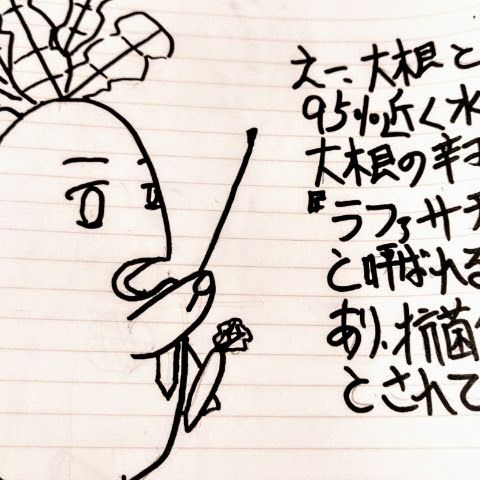 えー、大根と
95%近く水
大根の辛
『ラファサ
と呼ばれる
あり、抗菌
とされて